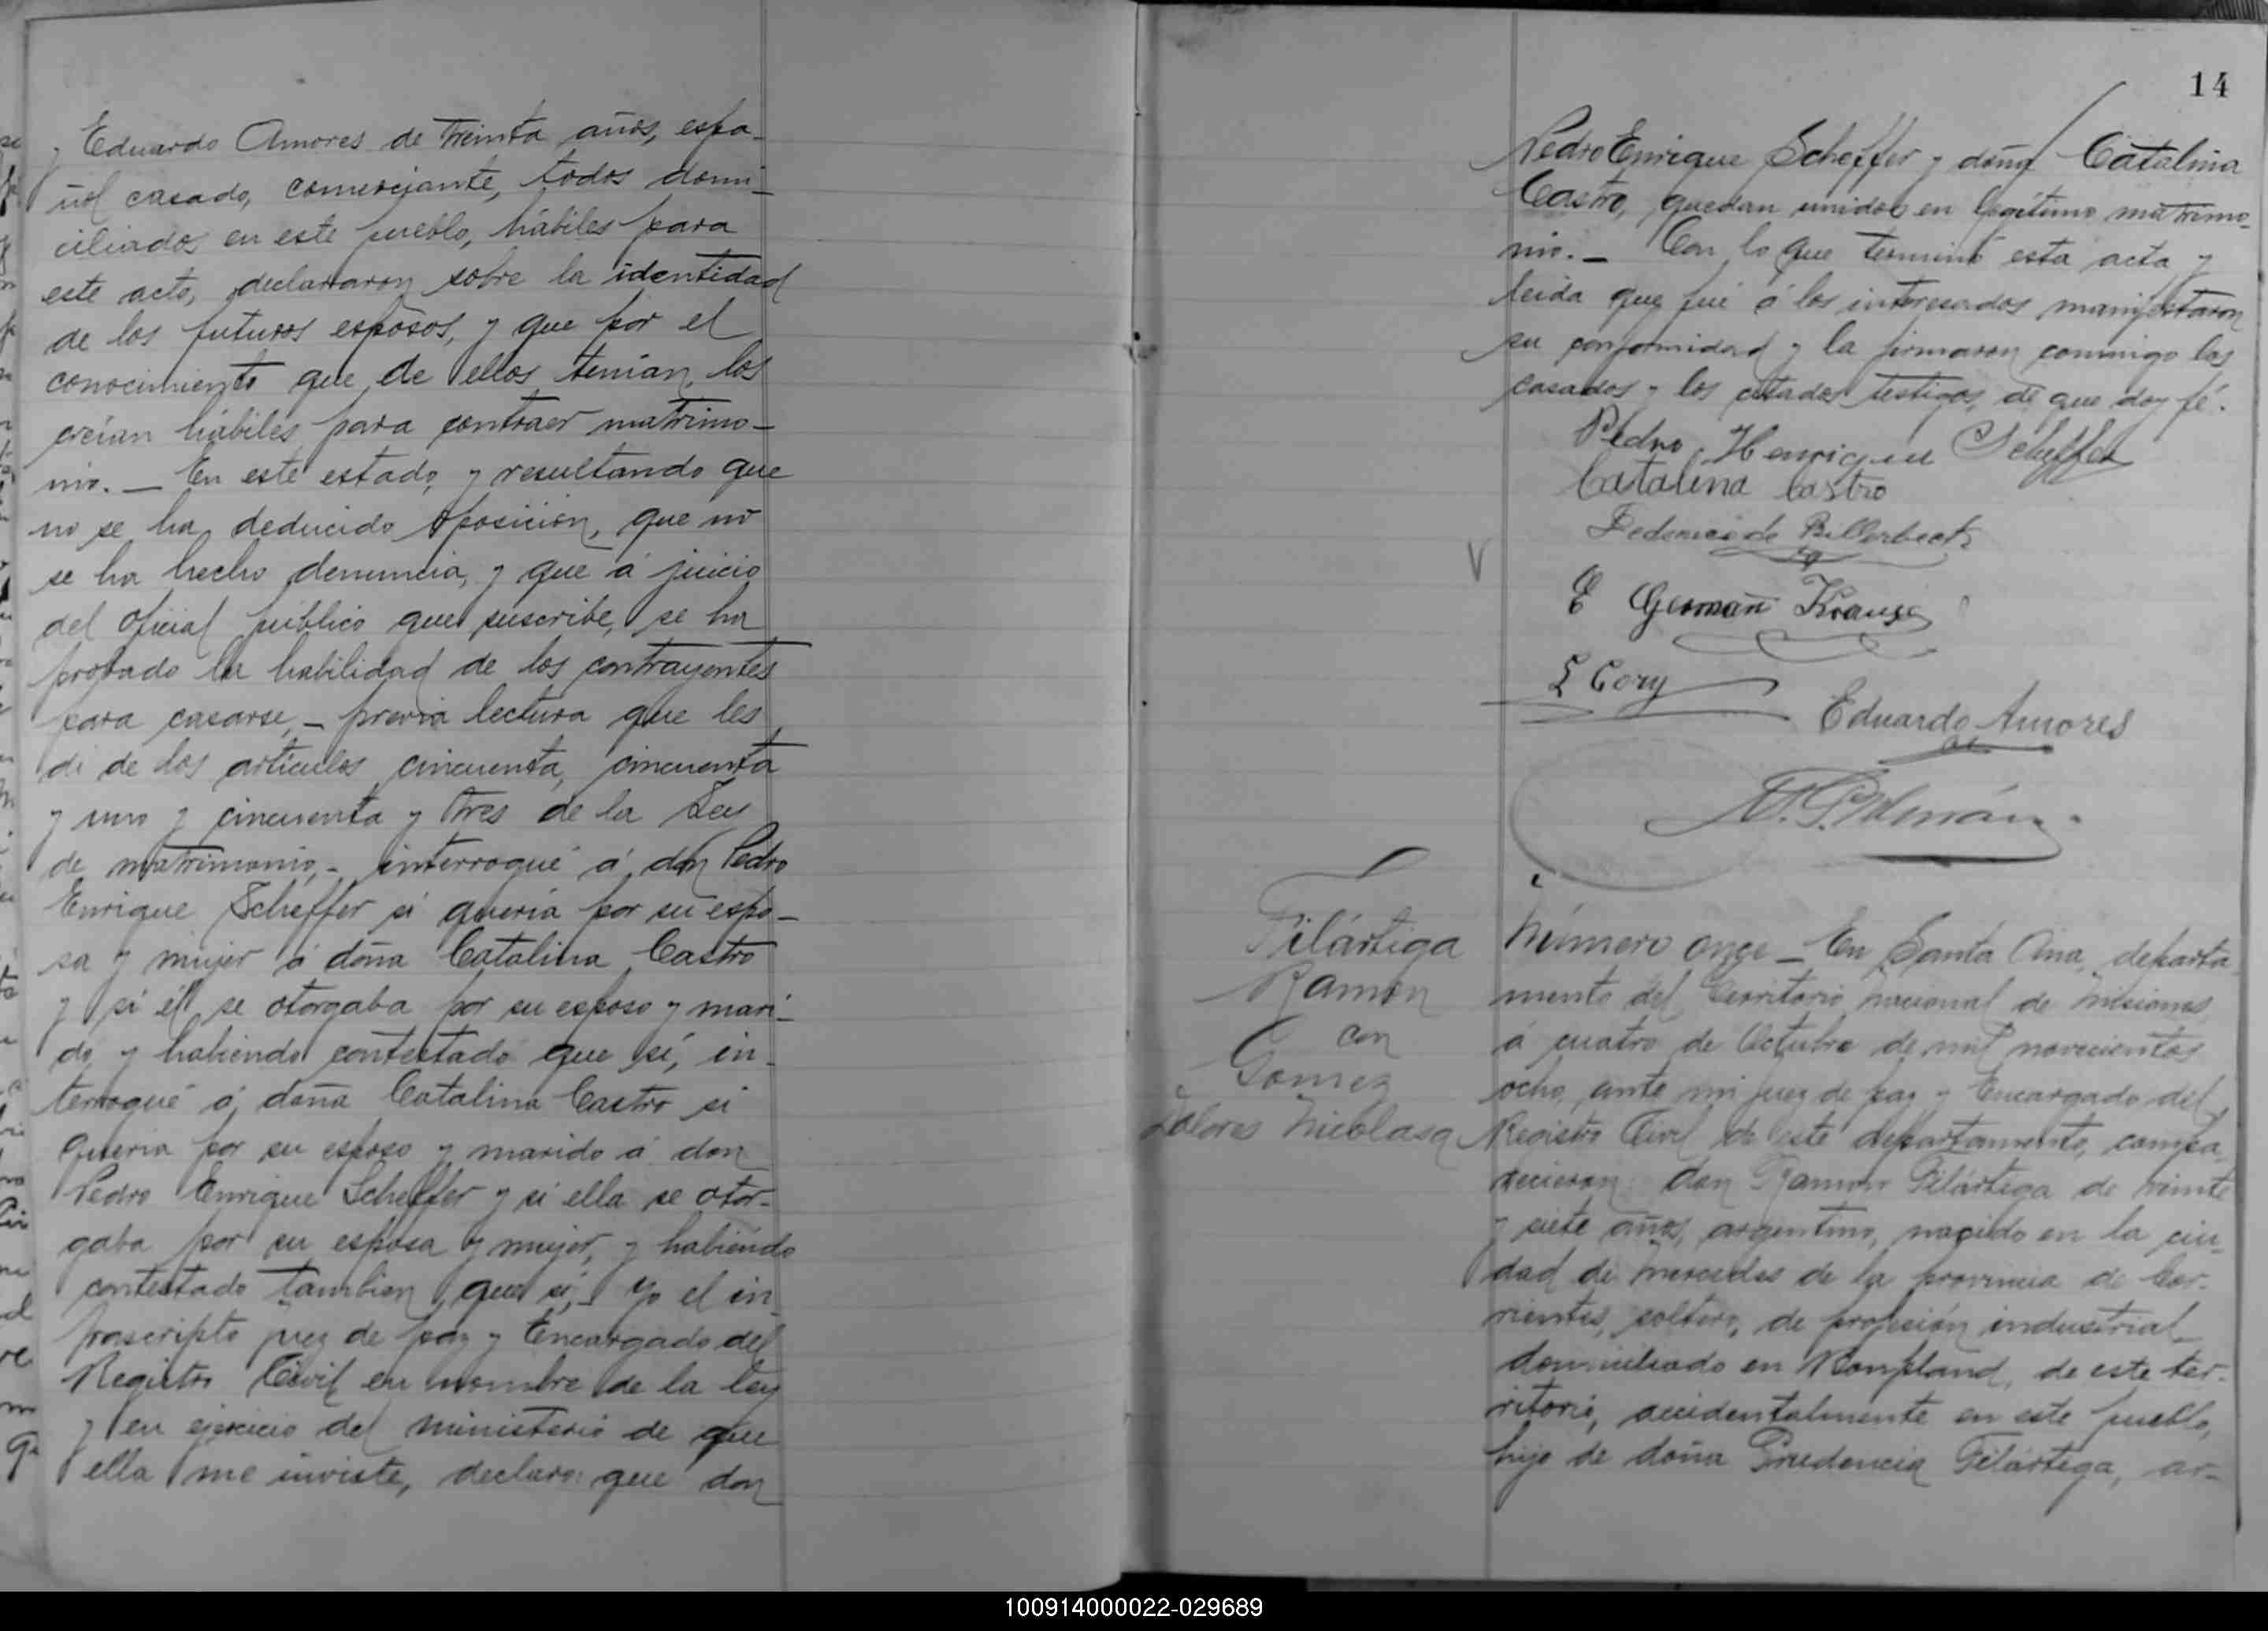 y Eduardo Amores de treinta años, espa-
ñol casado, comerciante, todos domi-
ciliados en este pueblo, hábiles para
este acto, declararon sobre la identidad
de los futuros esposos, y que por el
conocimiento que de ellos tenian, los
creian hábiles para contraer matrimo-
nio. — En este estado, y resultando que
no se ha deducido oposicion, que no
se ha hecho denuncia, y que á juicio
del oficial público que suscribe, se ha
probado la habilidad de los contrayentes
para casarse, — previa lectura que les
di de los articulos cincuenta, cincuenta
y uno y cincuenta y tres de la Ley
de matrimonio, — interrogué á don Pedro
Enrique Scheffer si queria por su espo-
sa y mujer á doña Catalina Castro
y si él se otorgaba por su esposo y mari-
do, y habiendo contestado que sí, in-
terrogué á doña Catalina Castro si
queria por su esposo y marido á don
Pedro Enrique Scheffer y si ella se otor-
gaba por su esposa y mujer, y habiendo
contestado tambien que sí, — Yo el in-
frascripto juez de paz y Encargado del
Registro Civil en nombre de la ley
y en ejercicio del ministerio de que
ella me inviste, declaro: que don
14
Pedro Enrique Scheffer y doña Catalina
Castro, quedan unidos en legítimo matrimo-
nio. — Con lo que terminó esta acta y
leida que fué á los interesados manifestaron
su conformidad y la firmaron conmigo los
casados y los citados testigos, de que doy fé.
Pedro Henrique Scheffer
Catalina Castro
Federico de Billerbeck
E German Krause
L Cory
Eduardo Amores
Filártiga
Ramon
con
Gomez
Dolores Nicolasa
Número once — En Santa Ana, departa
mento del Territorio Nacional de Misiones,
á cuatro de Octubre de mil novecientos
ocho, ante mi juez de paz y Encargado del
Registro Civil de este departamento, compa-
recieron: don Ramon Filártiga de veinte
y siete años, argentino, nacido en la ciu-
dad de Mercedes de la provincia de Cor-
rientes, soltero, de profesión industrial
domiciliado en Bonpland, de este ter-
ritorio, accidentalmente en este pueblo,
hijo de doña Prudencia Filártiga, ar-
100914000022-029689